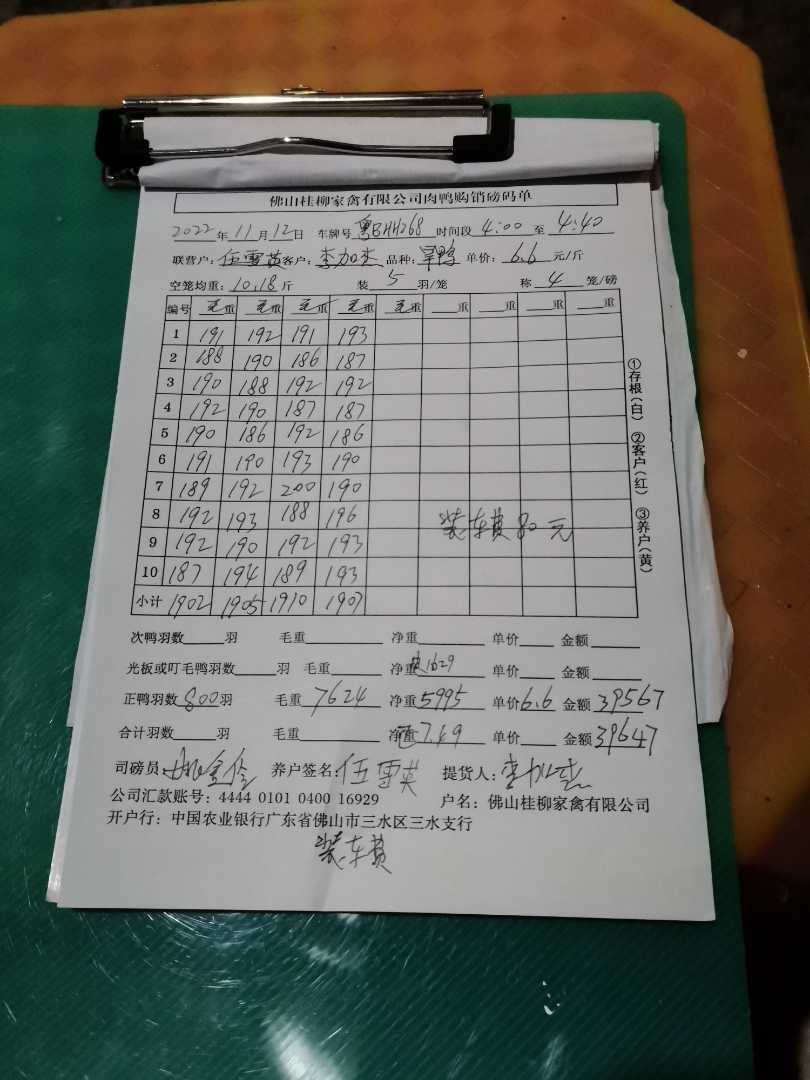 佛山桂柳家禽有限公司肉鸭购销磅码单
2022年11月12日 车牌号粤BHH268 时间段4:00至4:40
联营户:伍雪英 客户:李加杰 品种:旱鸭 单价:6.6元/斤
空笼均重:10.18斤 装5羽/笼 称4笼/磅
编号 毛重 毛重 毛重 毛重 毛重 重 重 重 重
1 191 192 191 193
2 188 190 186 187
3 190 188 192 192
4 192 190 187 187
5 190 186 192 186
6 191 190 193 190
7 189 192 200 190
8 192 193 188 196
9 192 190 192 193
10 187 194 189 193
小计 1902 1905 1910 1907
装车费80元
①存根(白) ②客户(红) ③养户(黄)
次鸭羽数 羽 毛重 净重 单价 金额
光板或叮毛鸭羽数 羽 毛重 净重 1629 单价 金额
正鸭羽数800羽 毛重7624 净重5995 单价6.6 金额39567
合计羽数 羽 毛重 净重 7.49 单价 金额39647
司磅员 养户签名:伍雪英 提货人:
公司汇款账号:4444 0101 0400 16929 户名:佛山桂柳家禽有限公司
开户行:中国农业银行广东省佛山市三水区三水支行
装车费